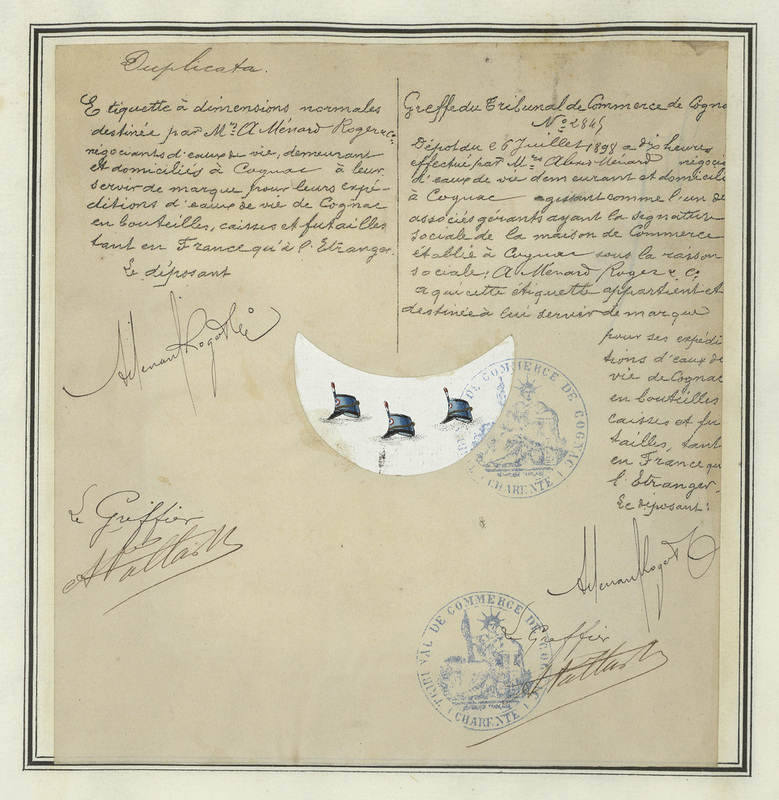 Duplicata.
Etiquette à dimensions normales
destinée par Mrs A Ménard Roger & Co
négociants d'eaux de vie, demeurant
et domiciliés à Cognac à leur
servir de marque pour leurs expé-
ditions d'eaux de vie de Cognac
en bouteilles, caisses et futailles
tant en France qu'à l'Etranger.
Le déposant
Le Greffier
Greffe du Tribunal de Commerce de Cogna
No 2845
Dépôt du 6 Juillet 1898 à heures
effectué par Alexis Ménard négocia
d'eaux de vie demeurant et domicili
à Cognac agissant comme l'un de
associés gérants ayant la signature
sociale de la maison de Commerce
établie à Cognac sous la raison
sociale: A Ménard Roger & Co
a qui cette étiquette appartient et
destinée à lui servir de marque
pour ses expédi
tions d'eaux de
vie de Cognac
en bouteilles
caisses et fu
tailles, tant
en France qu
l'Etranger.
Le déposant:
DE COMMERCE DE COGNAC
CHARENTE
Le Greffier
TRIBUNAL DE COMMERCE DE COGNAC
CHARENTE